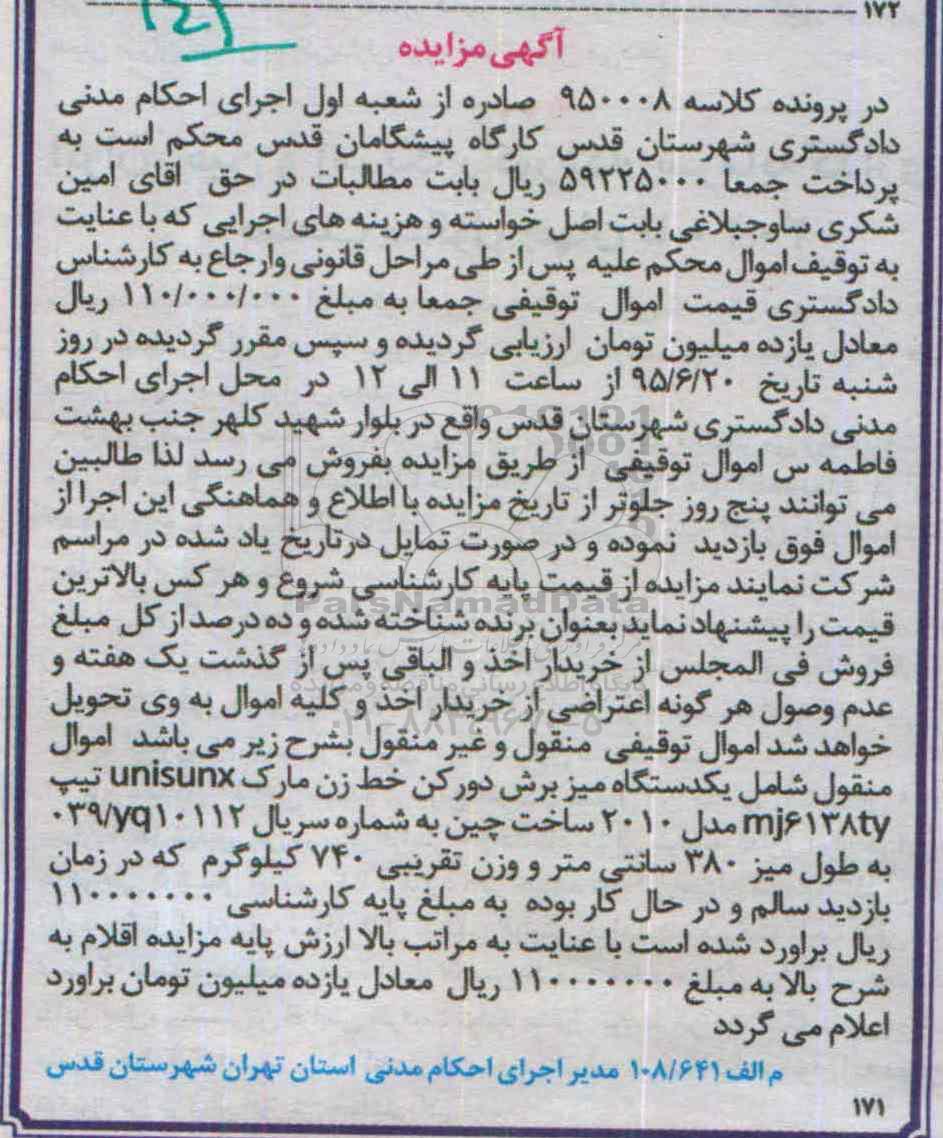 ۱۷۲
آگهی مزایده
در پرونده کلاسه ۹۵۰۰۰۸ صادره از شعبه اول اجرای احکام مدنی
دادگستری شهرستان قدس کارگاه پیشگامان قدس محکم است به
پرداخت جمعا ۵۹۲۲۵۰۰۰ ریال بابت مطالبات در حق اقای امین
شکری ساوجبلاغی بابت اصل خواسته و هزینه های اجرایی که با عنایت
به توقیف اموال محکم علیه پس از طی مراحل قانونی وارجاع به کارشناس
دادگستری قیمت اموال توقیفی جمعا به مبلغ ۱۱۰/۰۰۰/۰۰۰ ریال
معادل یازده میلیون تومان ارزیابی گردیده و سپس مقرر گردیده در روز
شنبه تاریخ ۹۵/۶/۲۰ از ساعت ۱۱ الی ۱۲ در محل اجرای احکام
مدنی دادگستری شهرستان قدس واقع در بلوار شهید کلهر جنب بهشت
فاطمه س اموال توقیفی از طریق مزایده بفروش می رسد لذا طالبین
می توانند پنج روز جلوتر از تاریخ مزایده با اطلاع و هماهنگی این اجرا از
اموال فوق بازدید نموده و در صورت تمایل درتاریخ یاد شده در مراسم
شرکت نمایند مزایده از قیمت پایه کارشناسی شروع و هر کس بالاترین
ParsNamadData
قیمت را پیشنهاد نماید بعنوان برنده شناخته شده و ده درصد از کل مبلغ
فروش فی المجلس از خریدار اخذ و الباقی پس از گذشت یک هفته و
عدم وصول هر گونه اعتراضی از خریدار اخذ و کلیه اموال به وی تحویل
خواهد شد اموال توقیفی منقول و غیر منقول بشرح زیر می باشد اموال
منقول شامل یکدستگاه میز برش دور کن خط زن مارک unisunx تیپ
mj۶۱۳۸ty مدل ۲۰۱۰ ساخت چین به شماره سریال ۰۳۹/yq۱۰۱۱۲
به طول میز ۳۸۰ سانتی متر و وزن تقریبی ۷۴۰ کیلوگرم که در زمان
بازدید سالم و در حال کار بوده به مبلغ پایه کارشناسی ۱۱۰۰۰۰۰۰۰
ریال براورد شده است با عنایت به مراتب بالا ارزش پایه مزایده اقلام به
شرح بالا به مبلغ ۱۱۰۰۰۰۰۰۰ ریال معادل یازده میلیون تومان براورد
اعلام می گردد
م الف ۱۰۸/۶۴۱ مدیر اجرای احکام مدنی استان تهران شهرستان قدس
۱۷۱